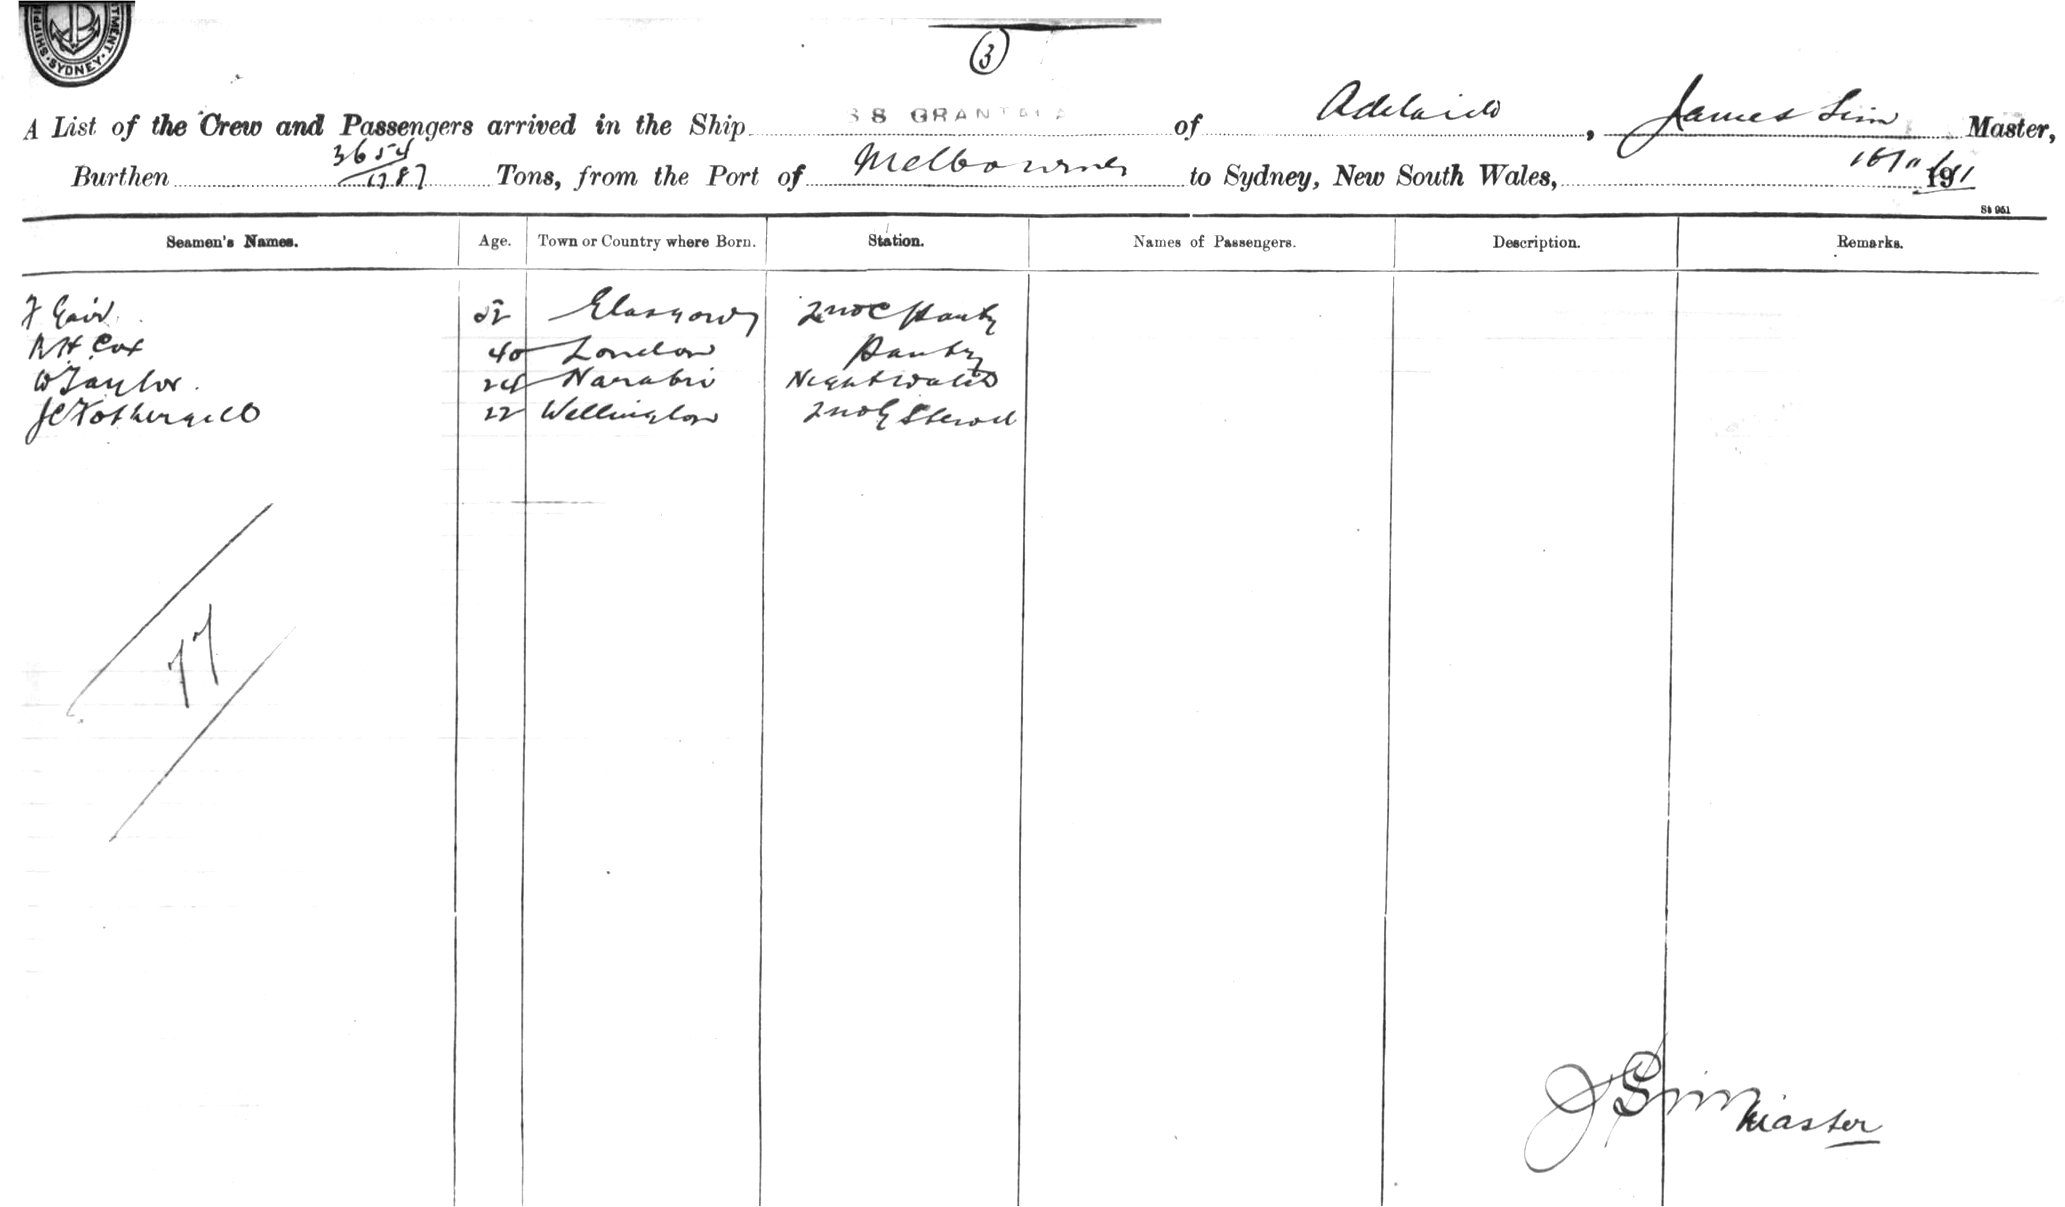 SHIPPI TMENT SYDNEY
3
A List of the Crew and Passengers arrived in the Ship SS GRANTALA of Adelaide, James Sim Master,
Burthen 3654/1787 Tons, from the Port of Melbourne to Sydney, New South Wales, 1911
St 961
Seamen's Names. Age. Town or Country where Born. Station. Names of Passengers. Description. Remarks.
F Gair 52 Glasgow 2nd C Pantry
A H Cox 40 London Pantry
W Taylor 24 Narabri Nightwatch
J C Fothergill 22 Wellington 2nd G Steward
77
J Sim Master